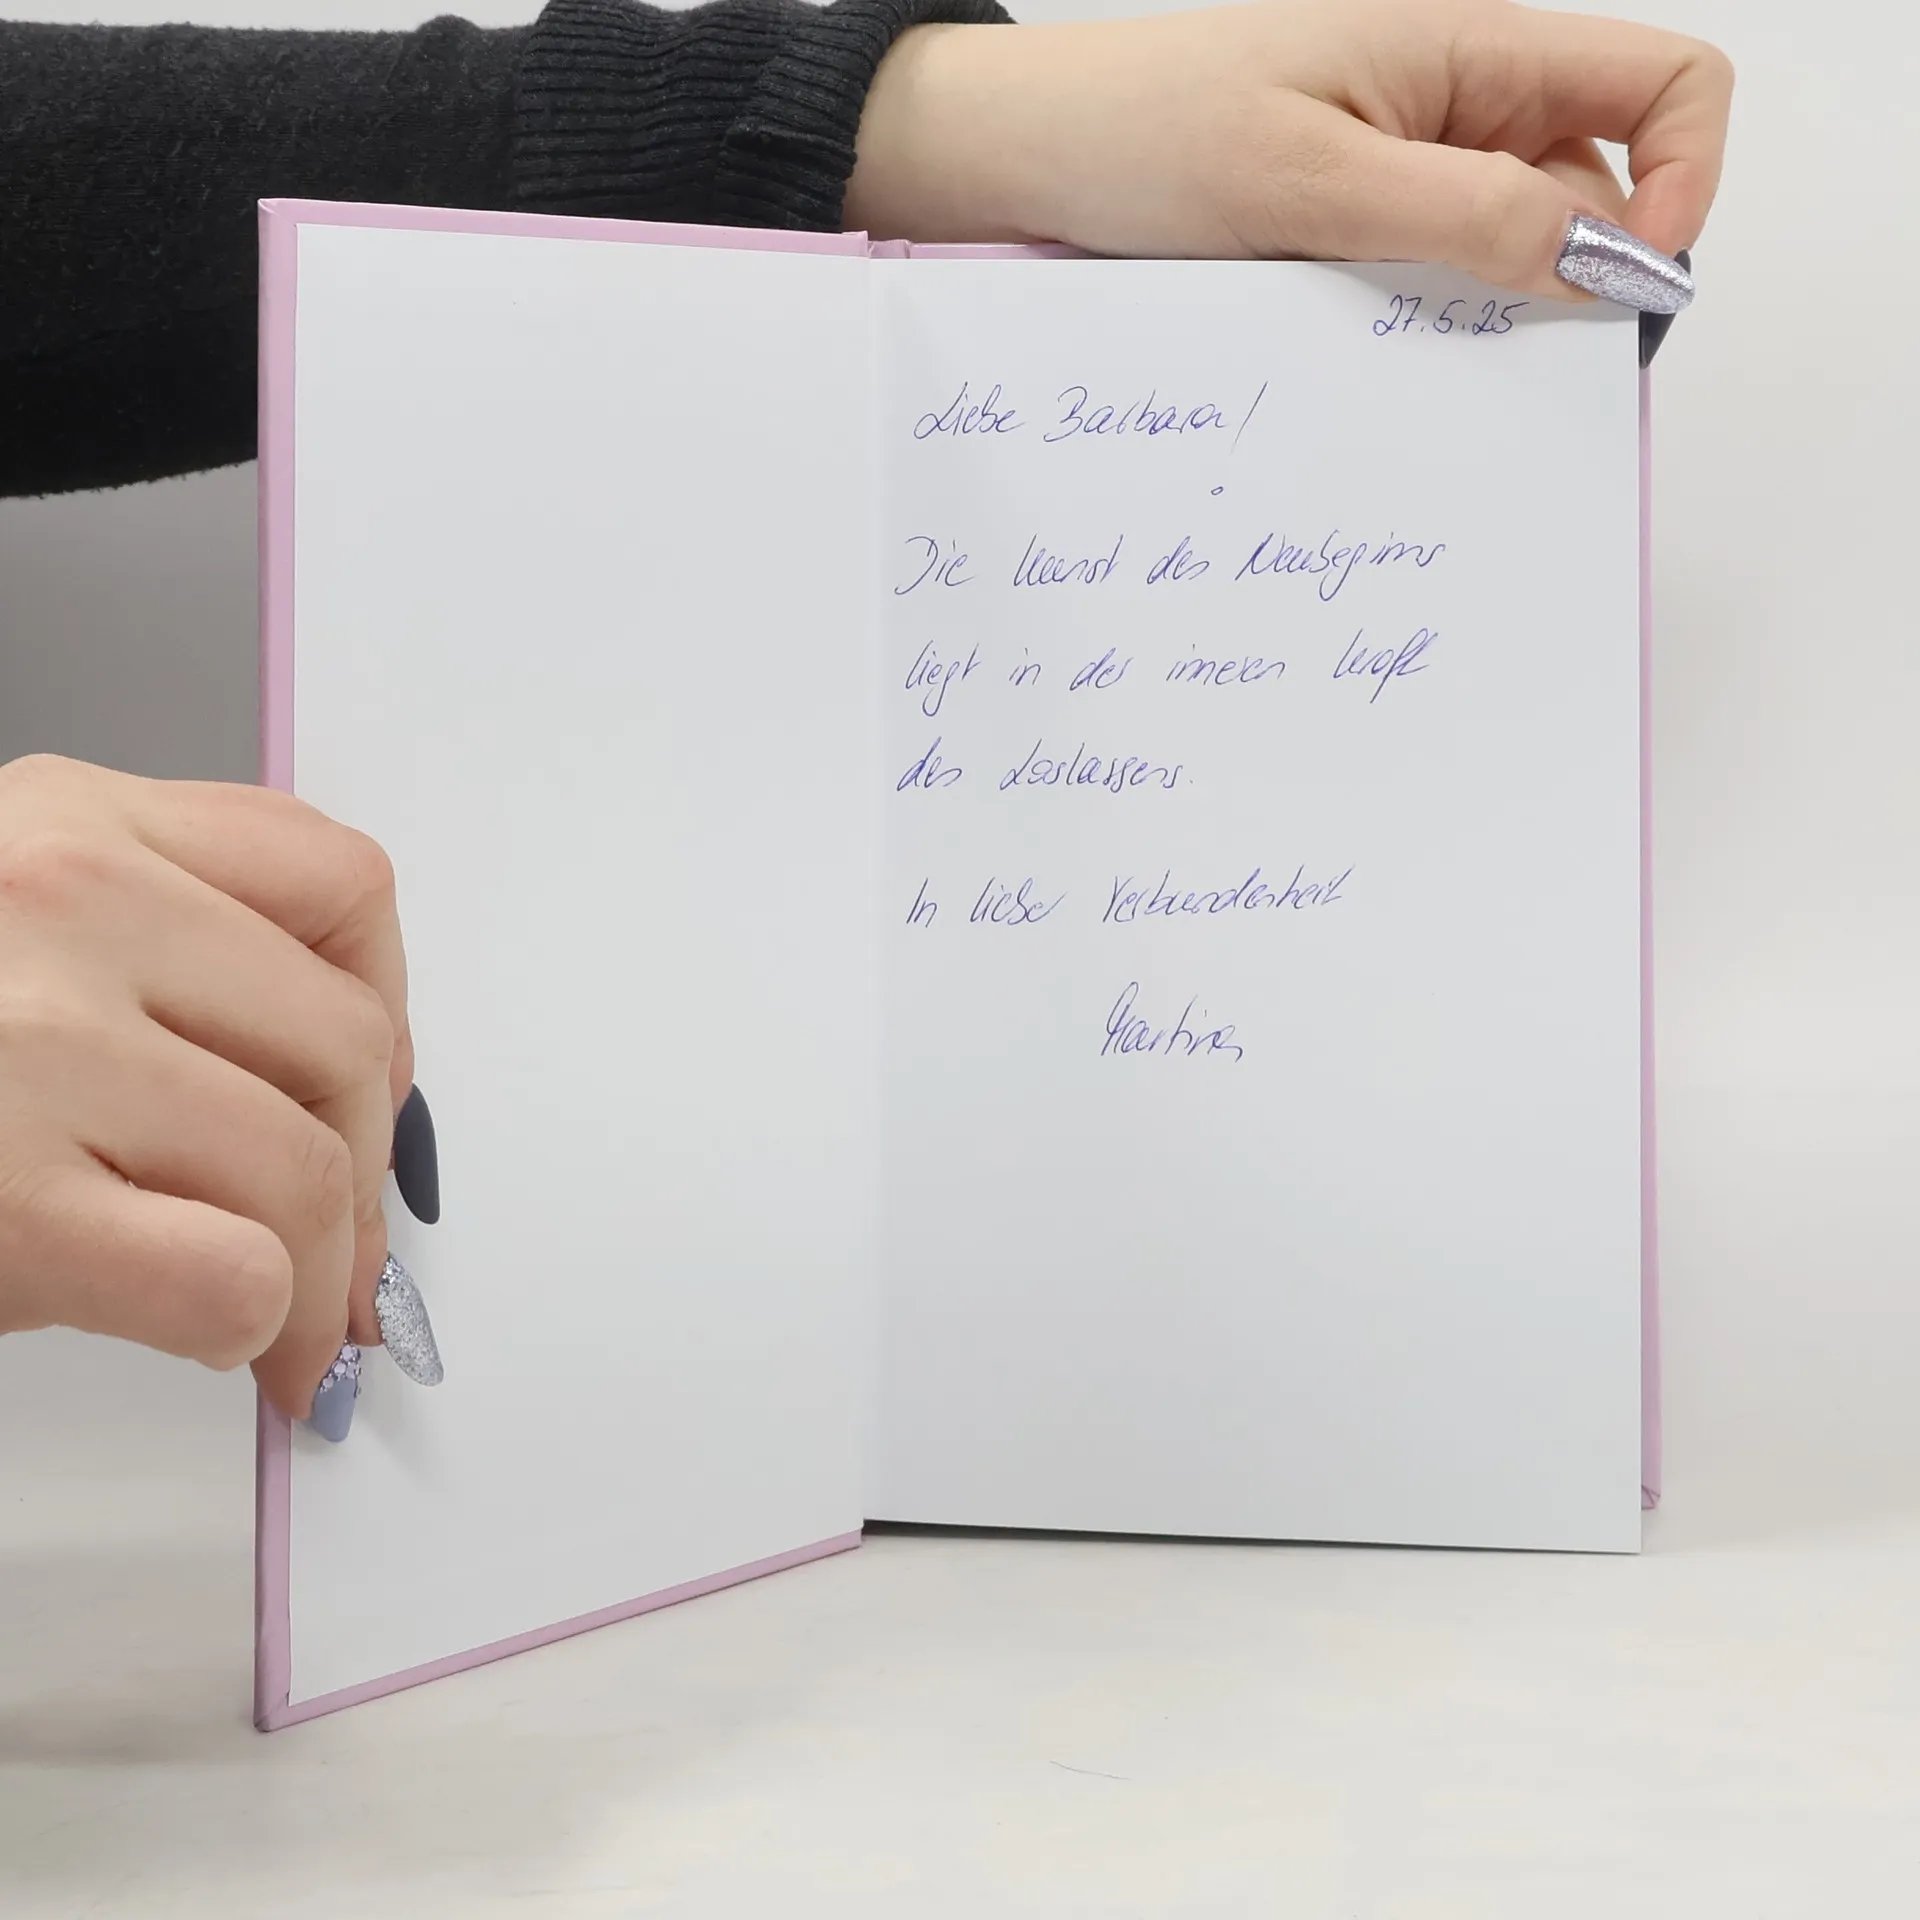 27.5.25
Liebe Barbara!
Die Kunst des Neubeginns
liegt in der inneren Kraft
des Loslassens.
In lieber Verbundenheit
Martina